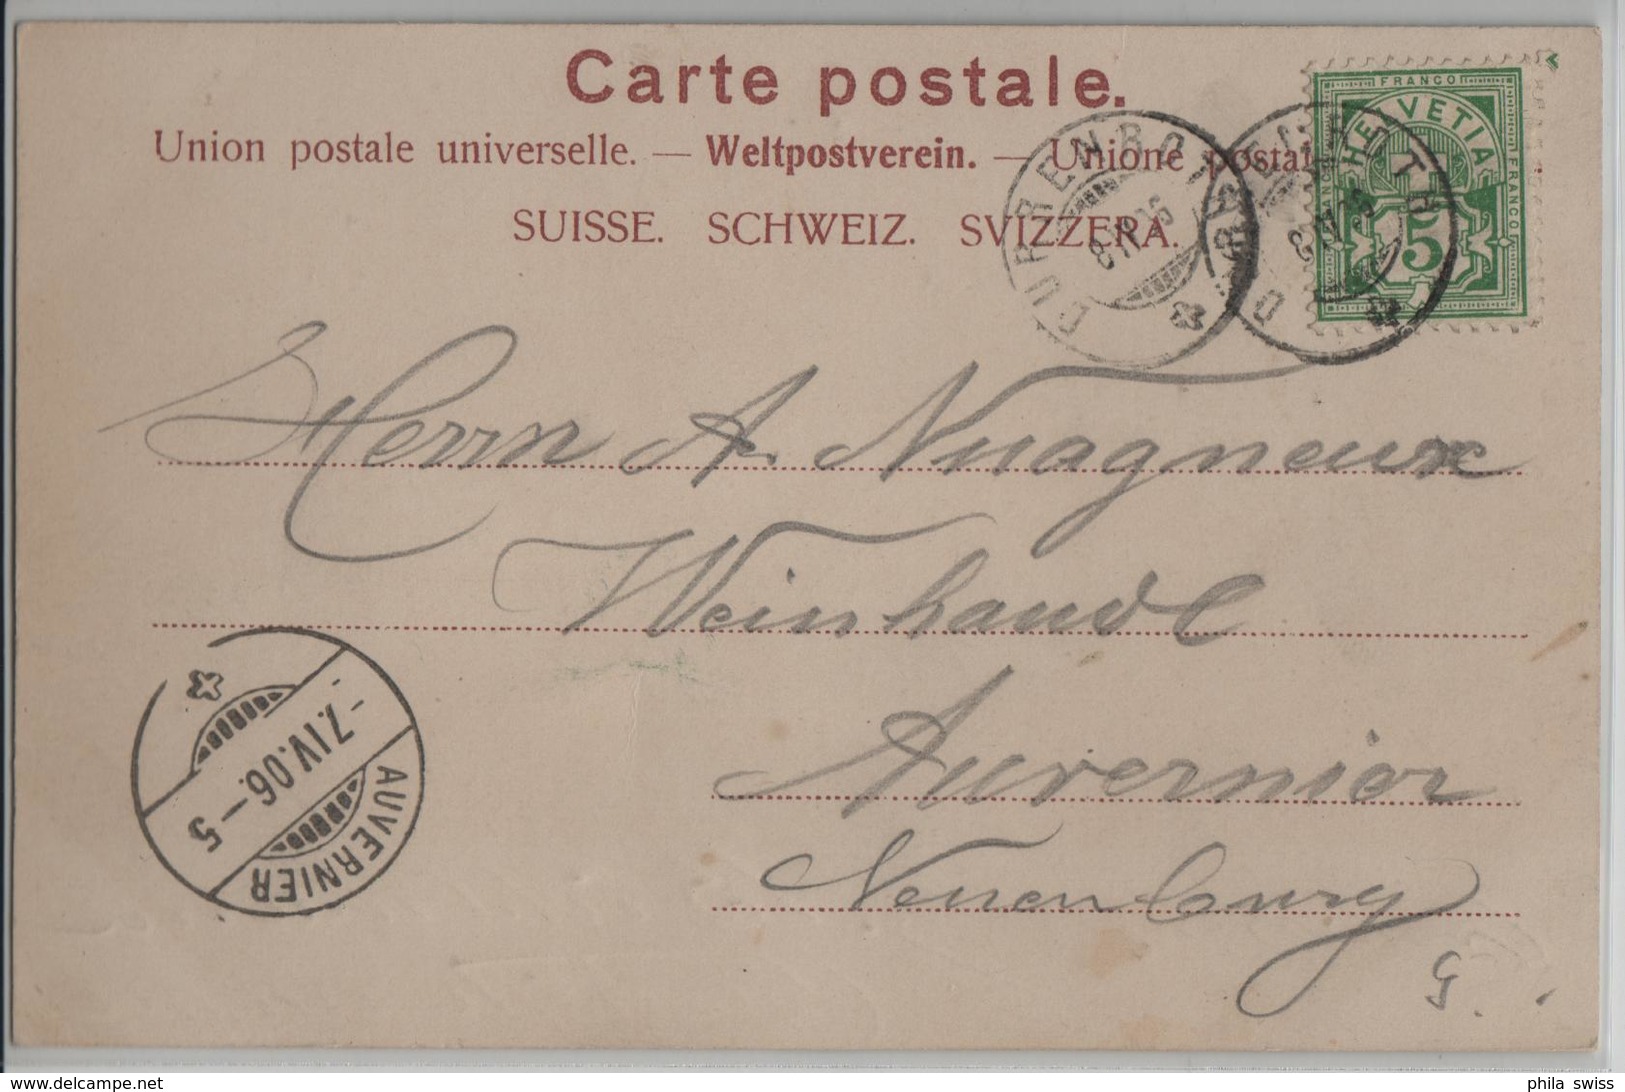 Carte postale.
Union postale universelle. — Weltpostverein. — Unione postal
SUISSE. SCHWEIZ. SVIZZERA.
FRANCO
HELVETIA
FRANCO
5
Herrn A. Nuagneux
Weinhandl
Auvernier
Neuenburg
G.
AUVERNIER
-7.IV.06.-5
phila swiss